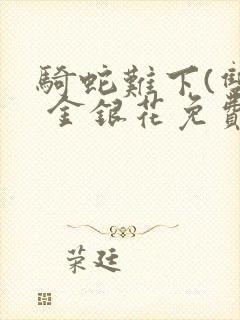 騎蛇難下(雙
金銀花免費
荣廷